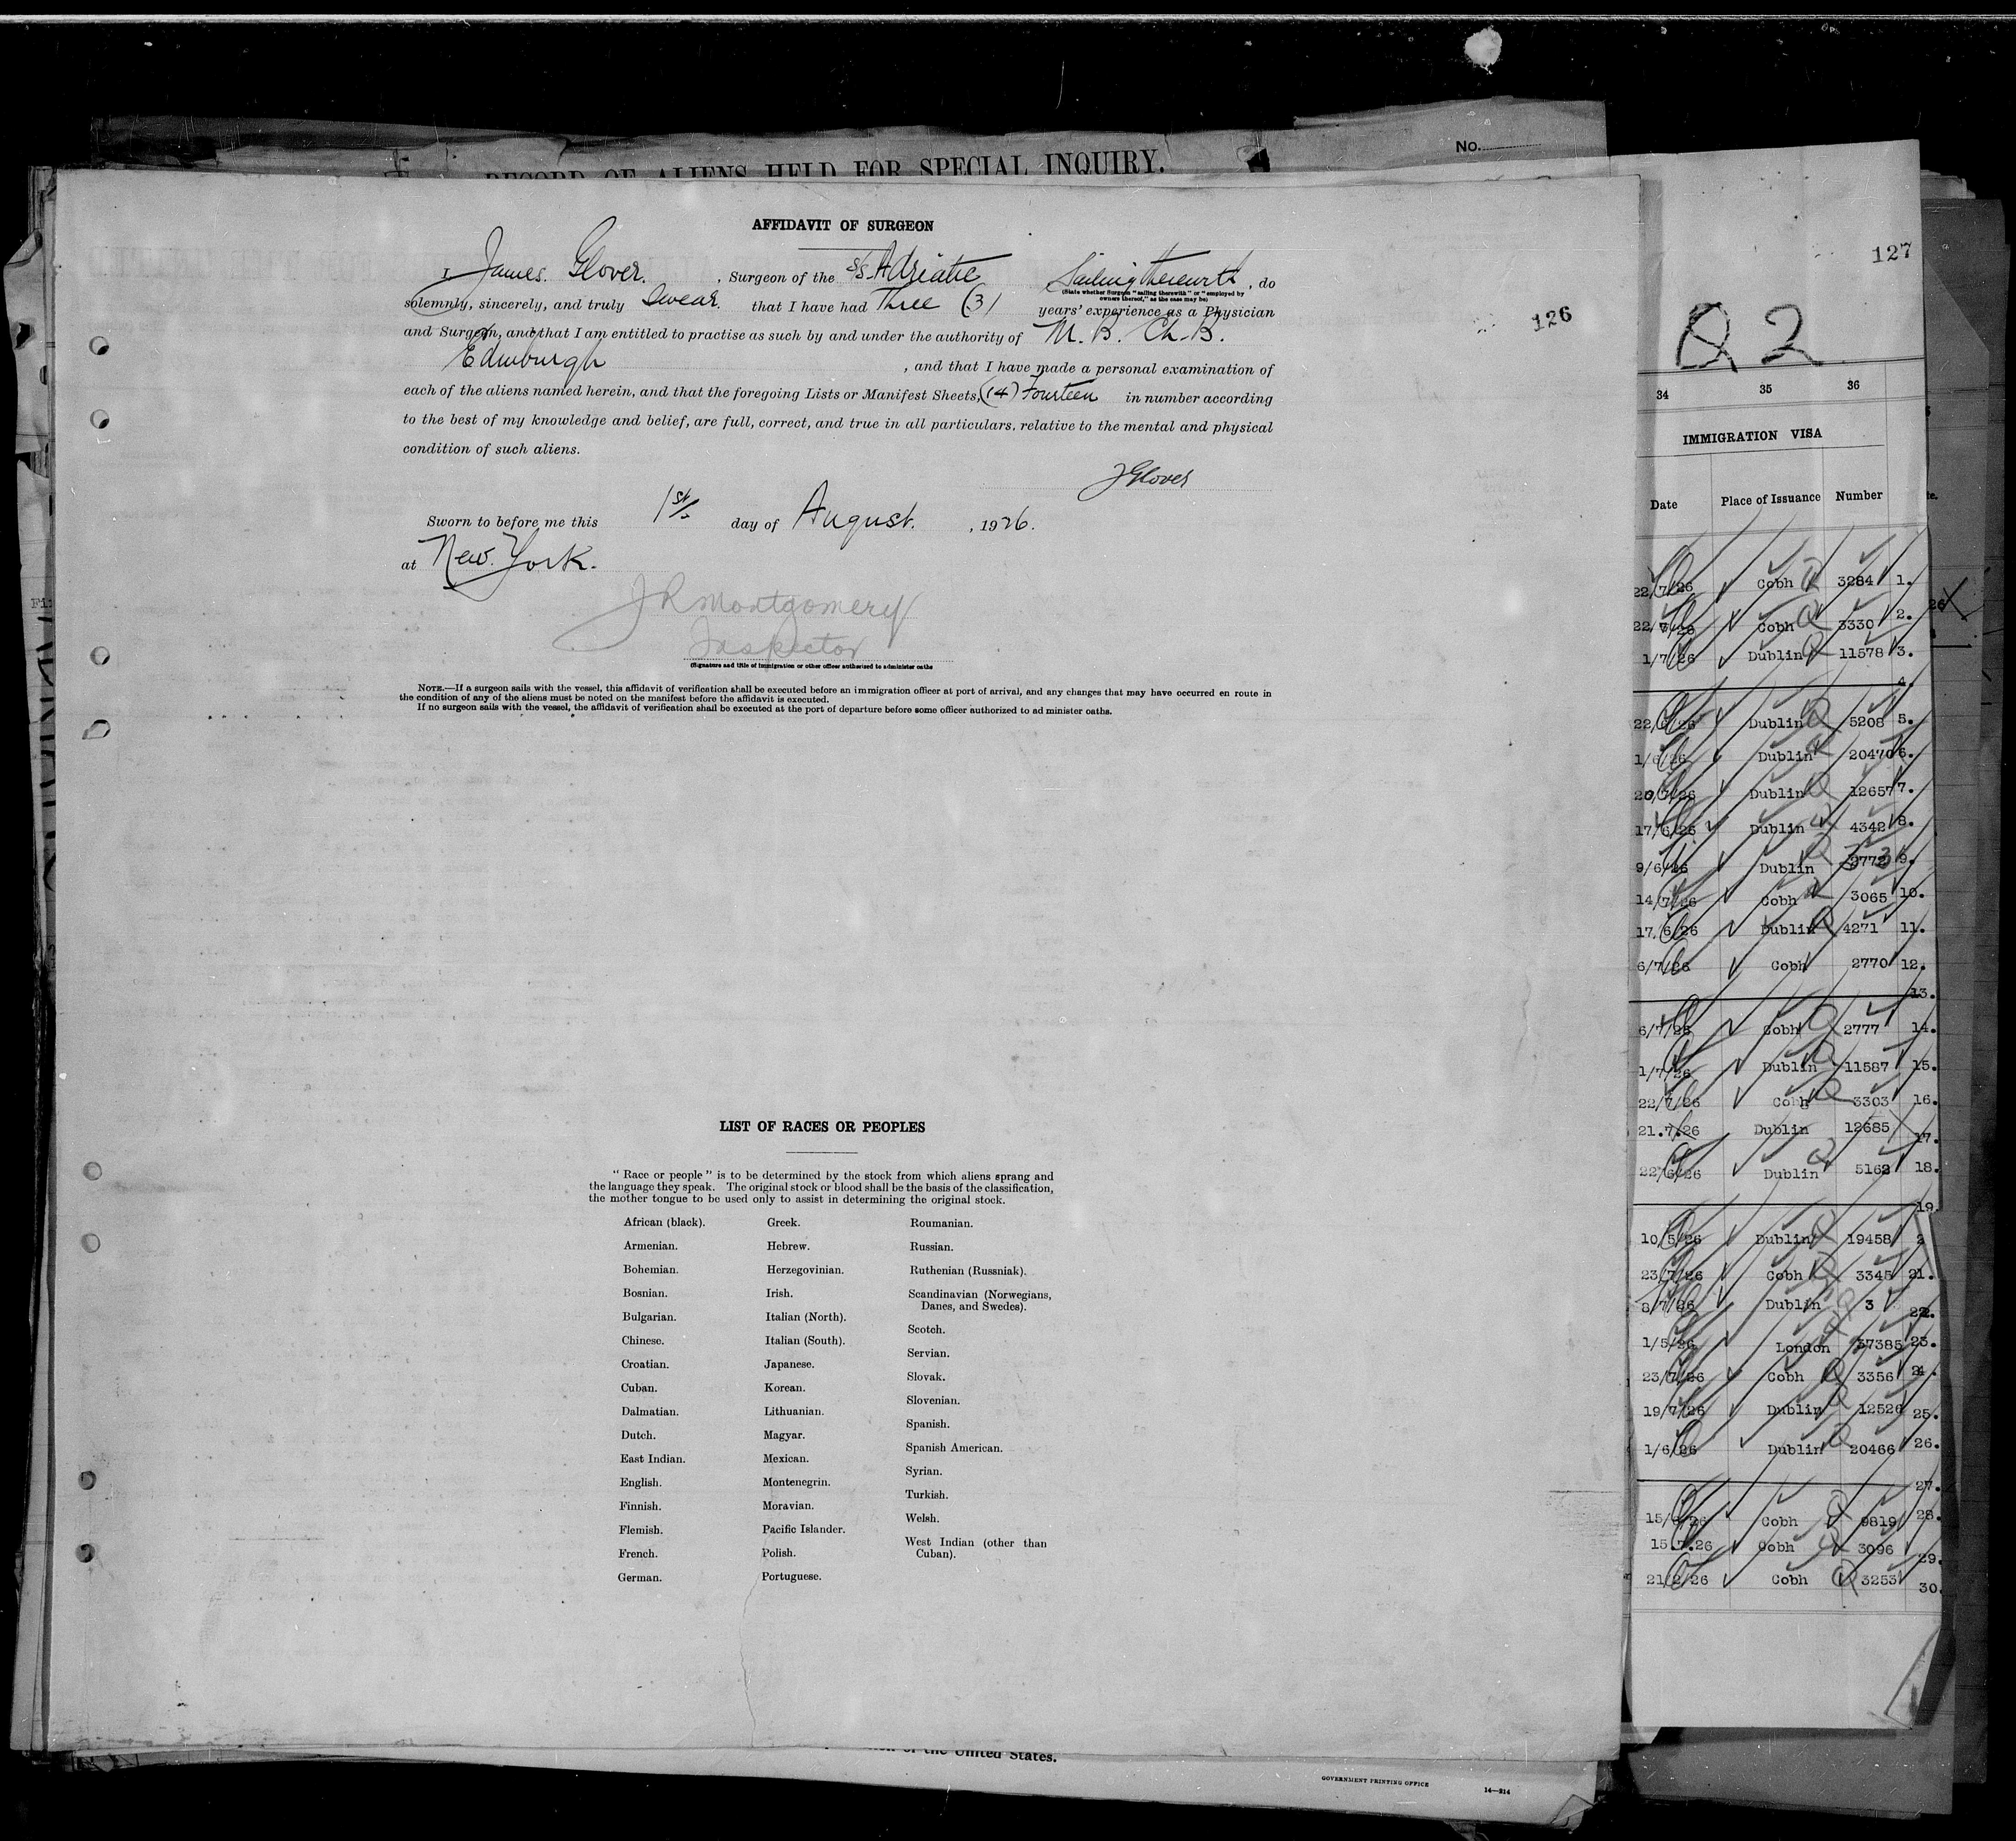 No.
RECORD OF ALIENS HELD FOR SPECIAL INQUIRY.
127
126
AFFIDAVIT OF SURGEON
I, James Glover, Surgeon of the S/S Adriatic Sailing therewith, do
(State whether Surgeon "sailing therewith" or "employed by
owners thereof," as the case may be)
solemnly, sincerely, and truly Swear that I have had Three (3) years' experience as a Physician
and Surgeon, and that I am entitled to practise as such by and under the authority of M. B. Ch. B.
Edinburgh, and that I have made a personal examination of
each of the aliens named herein, and that the foregoing Lists or Manifest Sheets, (14) Fourteen in number according
to the best of my knowledge and belief, are full, correct, and true in all particulars, relative to the mental and physical
condition of such aliens.
J Glover
Sworn to before me this 1st day of August. , 1926.
at New York.
J R Montgomery
Inspector
(Signature and title of immigration or other officer authorized to administer oaths
NOTE.—If a surgeon sails with the vessel, this affidavit of verification shall be executed before an immigration officer at port of arrival, and any changes that may have occurred en route in
the condition of any of the aliens must be noted on the manifest before the affidavit is executed.
If no surgeon sails with the vessel, the affidavit of verification shall be executed at the port of departure before some officer authorized to ad minister oaths.
LIST OF RACES OR PEOPLES
"Race or people" is to be determined by the stock from which aliens sprang and
the language they speak. The original stock or blood shall be the basis of the classification,
the mother tongue to be used only to assist in determining the original stock.
African (black).
Armenian.
Bohemian.
Bosnian.
Bulgarian.
Chinese.
Croatian.
Cuban.
Dalmatian.
Dutch.
East Indian.
English.
Finnish.
Flemish.
French.
German.
Greek.
Hebrew.
Herzegovinian.
Irish.
Italian (North).
Italian (South).
Japanese.
Korean.
Lithuanian.
Magyar.
Mexican.
Montenegrin.
Moravian.
Pacific Islander.
Polish.
Portuguese.
Roumanian.
Russian.
Ruthenian (Russniak).
Scandinavian (Norwegians,
Danes, and Swedes).
Scotch.
Servian.
Slovak.
Slovenian.
Spanish.
Spanish American.
Syrian.
Turkish.
Welsh.
West Indian (other than
Cuban).
of the United States.
GOVERNMENT PRINTING OFFICE 14—214
82
34 35 36
IMMIGRATION VISA
Date Place of Issuance Number
22/7/26 Cobh 3284 1.
22/7/26 Cobh 3330 2.
1/7/26 Dublin 11578 3.
4.
22/6/26 Dublin 5208 5.
1/6/26 Dublin 20470 6.
20/7/26 Dublin 12657 7.
17/6/26 Dublin 4342 8.
9/6/26 Dublin 9.
14/7/26 Cobh 3065 10.
17/6/26 Dublin 4271 11.
6/7/26 Cobh 2770 12.
13.
6/7/26 Cobh 2777 14.
1/7/26 Dublin 11587 15.
22/7/26 Cobh 3303 16.
21.7.26 Dublin 12685 17.
22/6/26 Dublin 5162 18.
19.
10/5/26 Dublin 19458 2
23/7/26 Cobh 3345 21.
8/7/26 Dublin 3 22.
1/5/26 London 37385 23.
23/7/26 Cobh 3356 24.
19/7/26 Dublin 12526 25.
1/6/26 Dublin 20466 26.
27.
Cobh 9819 28.
15.7.26 Cobh 3096 29.
Cobh 3253 30.